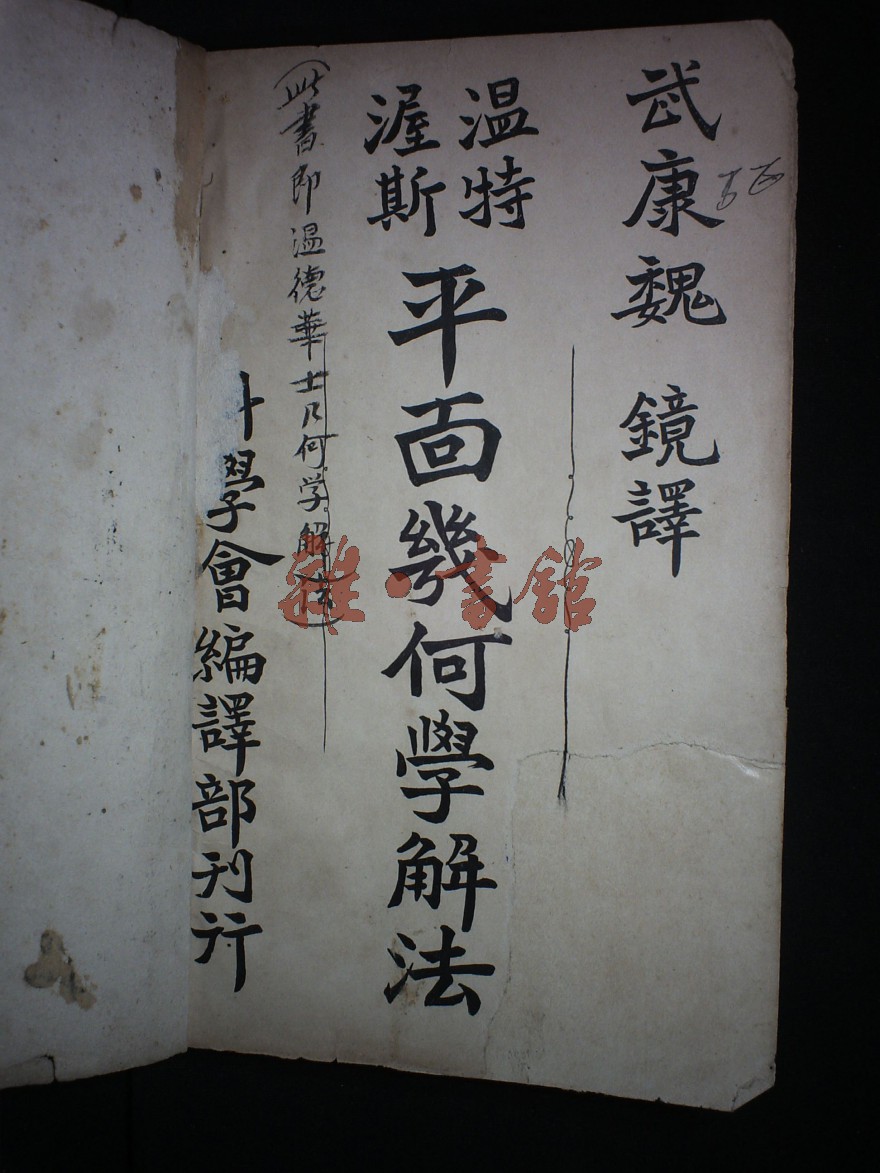 武康魏 鏡譯
温特
渥斯
平面幾何學解法
(此書即温德華士几何学解法)
學會編譯部刊行
雜·書館